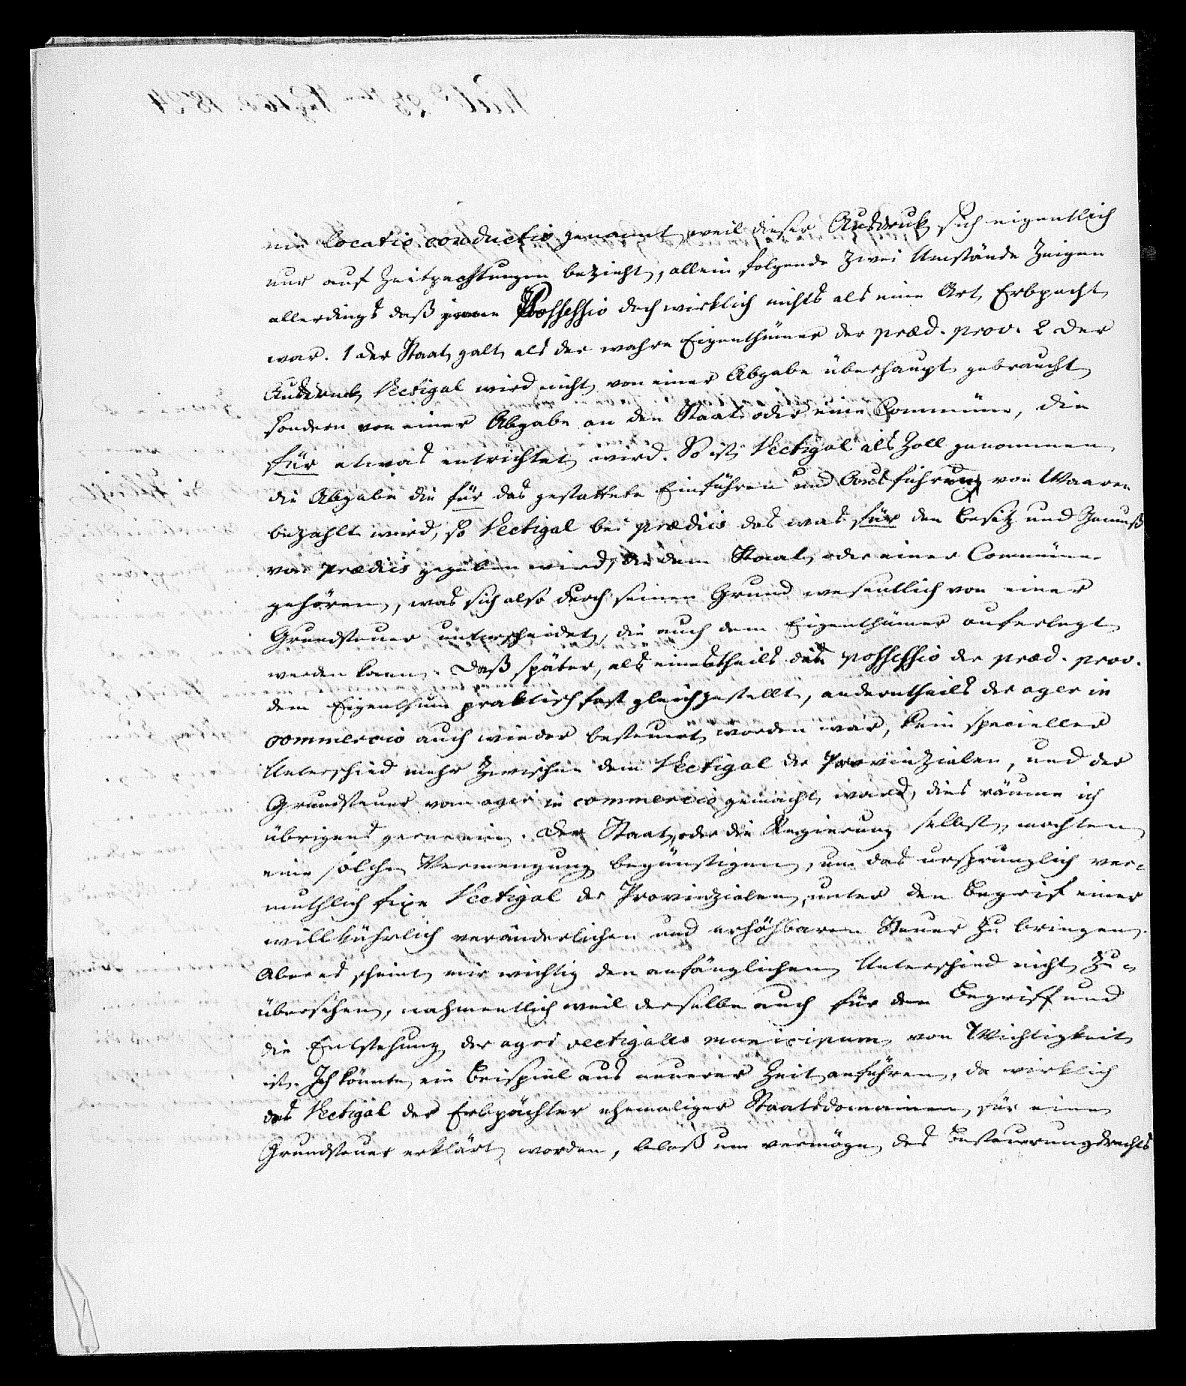 nie locatio conductio genannt, weil dieser Ausdruck sich eigentlich
nur auf Zeitpachtungen bezieht, allein folgende zwei Umstände zeigen
allerdings daß jene Possessio doch wirklich nichts als eine Art Erbpacht
war. 1 der Staat galt als der wahre Eigenthümer der præd. prov. 2 der
Ausdruck Vectigal wird nicht von einer Abgabe überhaupt gebraucht
sondern von einer Abgabe an den Staat oder eine Commüne, die
für etwas entrichtet wird. So ist Vectigal als Zoll genommen
die Abgabe die für das gestattete Einführen und Ausführung von Waaren
bezahlt wird, so Vectigal bei prædiis das was für den Besitz und Genuß
von prædiis gegeben wird, die dem Staat oder einer Commüne
gehören, was sich also durch seinen Grund wesentlich von einer
Grundsteuer unterscheidet, die auch dem Eigenthümer auferlegt
werden kann. Daß später, als einestheils die possessio der præd. prov.
dem Eigenthum praktisch fast gleichgestellt, anderntheils der ager in
commercio auch wieder besteuert worden war, kein specieller
Unterschied mehr zwischen dem Vectigal der Provinzialen, und der
Grundsteuer vom ager in commercio gemacht ward, dies räume ich
übrigens gerne ein. Der Staat, oder die Regierung selbst, mochten
eine solche Vermengung begünstigen, um das ursprünglich ver-
muthlich fixe Vectigal der Provinzialen, unter den Begrif einer
willkührlich veränderlichen und erhöhbaren Steuer zu bringen.
Aber es scheint mir wichtig den anfänglichen Unterschied nicht zu-
übersehen, nahmentlich weil derselbe auch für den Begriff und
die Entstehung der agri vectigales municipum, von Wichtigkeit
ist. Ich könnte ein Beispiel aus neuerer Zeit anführen, da wirklich
das Vectigal der Erbpächter ehemaliger Staatsdomainen, für eine
Grundsteuer erklärt worden, bloß um vermöge des Besteuerungsrechts